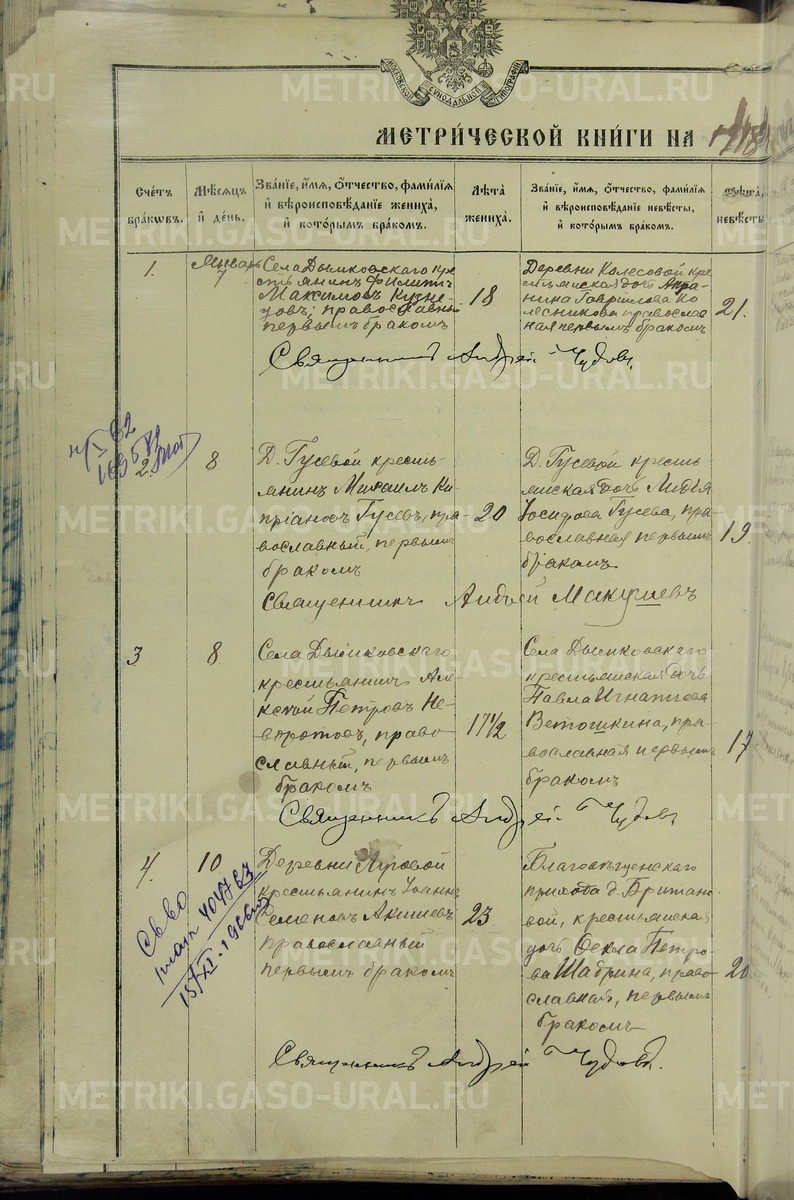 МОСКОВСКОЙ СУНОДАЛЬНОЙ ТИПОГРАФИИ
МЕТРИ́ЧЕСКОЙ КНИ́ГИ НА
Сче́тъ бра́кѡвъ.
Мѣ́сѧцъ и҆ де́нь.
Зва́нїе, и҆́мѧ, ѻ҆́тчество, фами́лїѧ
и҆ вѣроисповѣ́данїе жениха̀,
и҆ кото́рымъ бра́комъ.
Лѣ́та жениха̀.
Зва́нїе, и҆́мѧ, ѻ҆́тчество, фами́лїѧ
и҆ вѣроисповѣ́данїе невѣ́сты,
и҆ кото́рымъ бра́комъ.
Лѣ́та, невѣ́сты
1.
Январь
7
Села Дымковскаго кре
стьянинъ Филиппъ
Максимовъ Кузне
цовъ; православный
первымъ бракомъ
18
Деревни Колесовой кре
стьянская дочь Акра
нина Гаврилова Ко
лесникова православ
ная первымъ бракомъ
21.
Священникъ Андрей Чудовъ.
2.
8
Д. Гусевой кресть
янинъ Михаилъ Ки
прiановъ Гусевъ, пра
вославный, первымъ
бракомъ
20
Д. Гусевой кресть
янская дочь Лидiя
Iосифова Гусева, пра
вославная первымъ
бракомъ
19.
Священникъ Андрей Макушевъ
3
8
Села Дымковскаго
крестьянинъ Але
ксей Петровъ Не
воротовъ, право
славный, первымъ
бракомъ
17 1/2
Села Дымковскаго
крестьянская дочь
Павла Игнатiева
Ветошкина, пра
вославная первымъ
бракомъ
17
Священникъ Андрей Чудовъ
4.
10
Деревни Луговой
крестьянинъ Iоаннъ
Семеновъ Акишевъ
православный
первымъ бракомъ
23
Благовѣщенскаго
прихода д. Британо
вой, крестьянская
дочь Ѳекла Петро
ва Шабрина, право
славная, первымъ
бракомъ
20
Священникъ Андрей Чудовъ.
METRIKI.GASO-URAL.RU